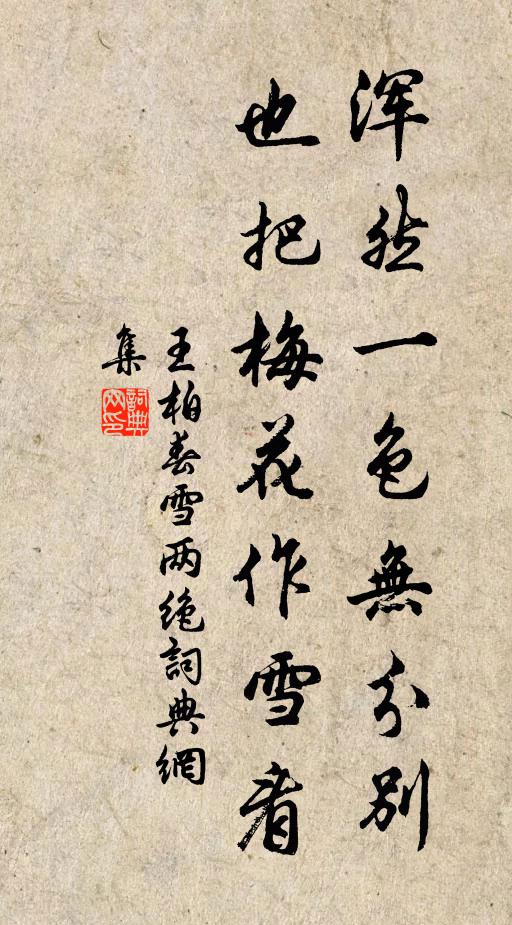 浑然一色無分别
也把梅花作雪看
王柏春雪两绝詞典網
集
詞典網印